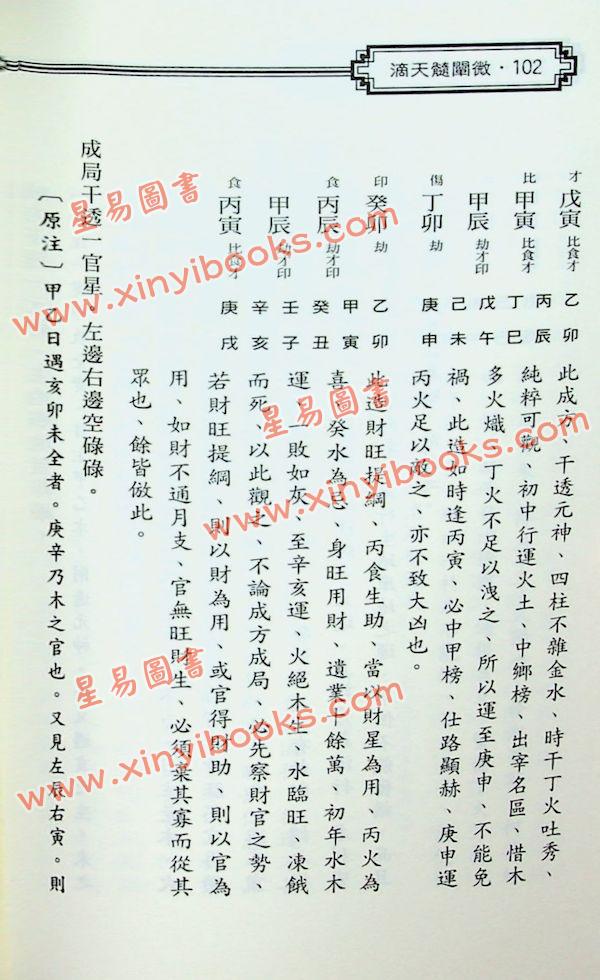 滴天髓闡微・102
才 戊寅 比食才
比 甲寅 比食才
甲辰 劫才印
傷 丁卯 劫
乙卯
丙辰
丁巳
戊午
己未
庚申
此成方、干透元神、四柱不雜金水、時干丁火吐秀、
純粹可觀、初中行運火土、中鄉榜、出宰名區、惜木
多火熾、丁火不足以洩之、所以運至庚申、不能免
禍、此造如時逢丙寅、必中甲榜、仕路顯赫、庚申運
丙火足以敵之、亦不致大凶也。
印 癸卯 劫
食 丙辰 劫才印
甲辰 劫才印
食 丙寅 比食才
乙卯
甲寅
癸丑
壬子
辛亥
庚戌
此造財旺提綱、丙食生助、當以財星為用、丙火為
喜、癸水為忌、身旺用財、遺業十餘萬、初年水木
運、一敗如灰、至辛亥運、火絕木生、水臨旺、凍餓
而死、以此觀之、不論成方成局、必先察財官之勢、
若財旺提綱、則以財為用、或官得財助、則以官為
用、如財不通月支、官無旺財生、必須棄其寡而從其
眾也、餘皆倣此。
成局干透一官星。左邊右邊空碌碌。
〔原注〕甲乙日遇亥卯未全者。庚辛乃木之官也。又見左辰右寅。則
星易圖書
www.xinyibooks.com
星易圖書
www.xinyibooks.com
星易圖書
www.xinyibooks.com